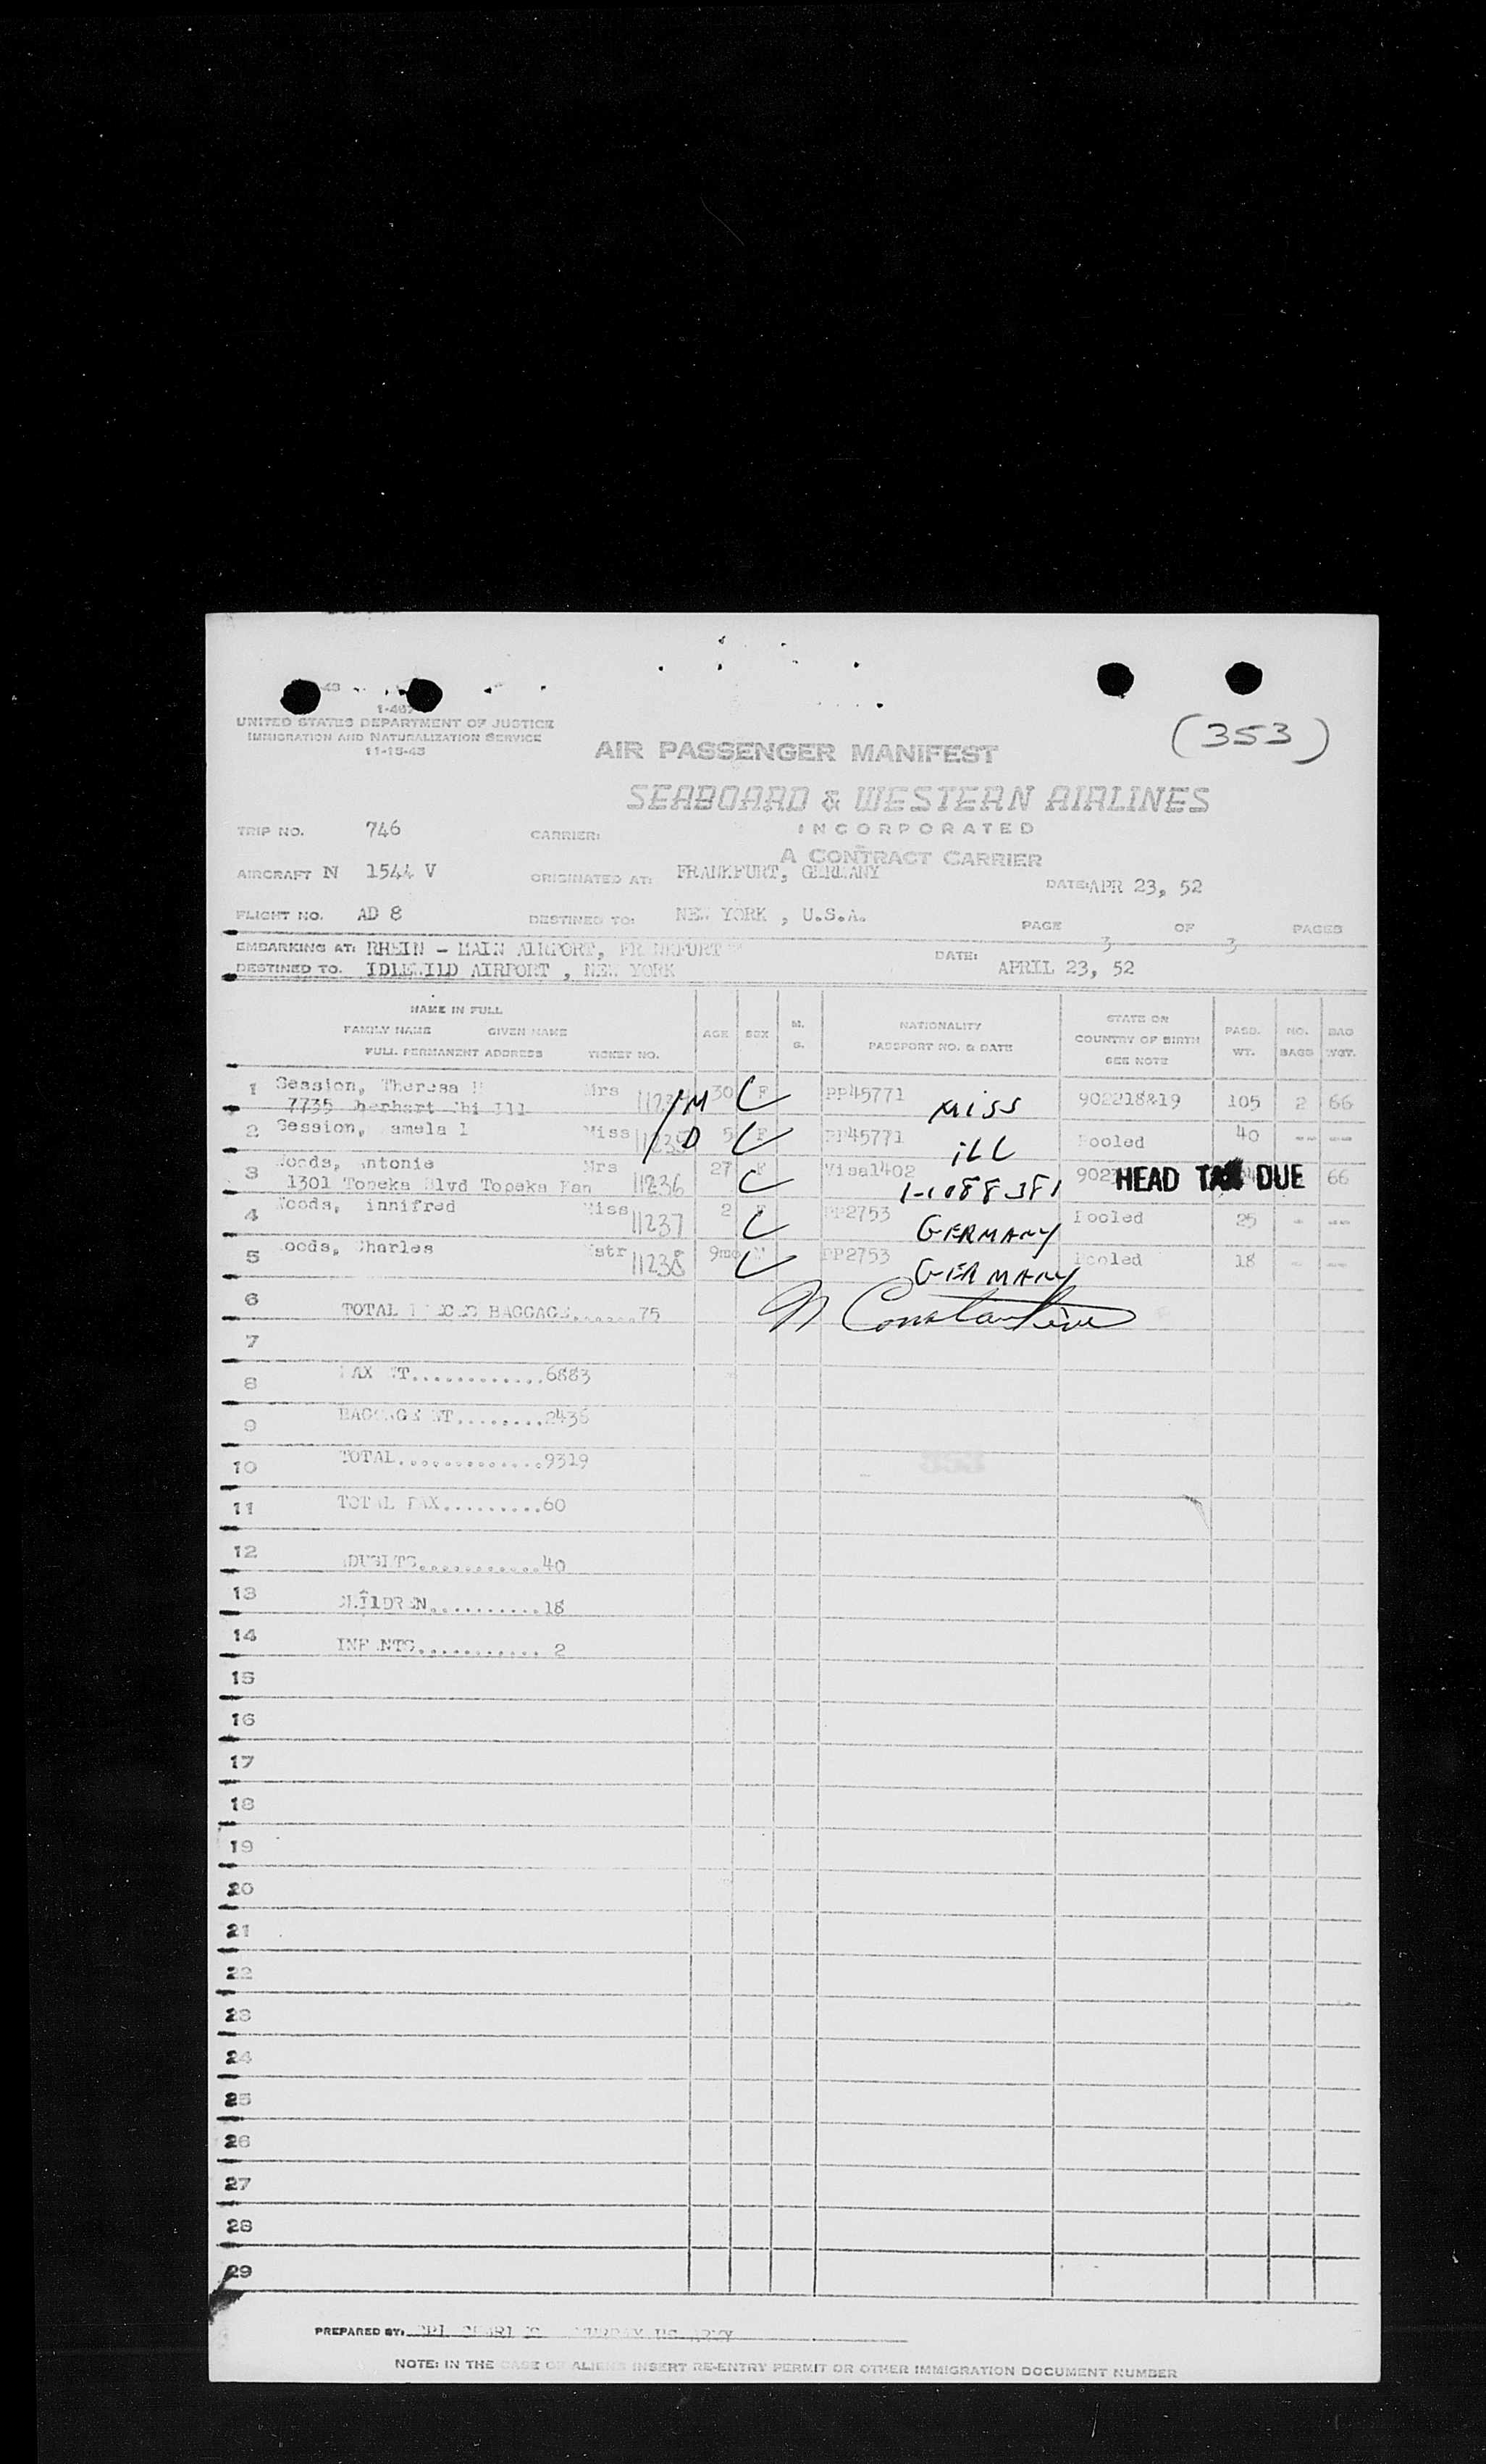 1-407
UNITED STATES DEPARTMENT OF JUSTICE
IMMIGRATION AND NATURALIZATION SERVICE
11-15-43
(353)
AIR PASSENGER MANIFEST
SEABOARD & WESTERN AIRLINES
INCORPORATED
A CONTRACT CARRIER
TRIP NO. 746 CARRIER:
AIRCRAFT N 1544 V ORIGINATED AT: FRANKFURT, GERMANY DATE: APR 23, 52
FLIGHT NO. AD 8 DESTINED TO: NEW YORK , U.S.A. PAGE 3 OF 3 PAGES
EMBARKING AT: RHEIN - MAIN AIRPORT, FR NKFURT DATE: APRIL 23, 52
DESTINED TO. IDLEWILD AIRPORT , NEW YORK
NAME IN FULL
FAMILY NAME GIVEN NAME
FULL PERMANENT ADDRESS TICKET NO.
AGE SEX M. S. NATIONALITY PASSPORT NO. & DATE STATE OR COUNTRY OF BIRTH SEE NOTE PASS. WT. NO. BAGS BAG WGT.
1 Session, Theresa Mrs 30 F PP45771 MISS 902218&19 105 2 66
7735 berhart Chi Ill M
2 Session, amela l Miss D 5 F PP45771 ILL Pooled 40 -- --
3 Woods, Antonie Mrs 11236 27 F Visa1402 HEAD TAX DUE 66
1301 Topeka Blvd Topeka Kan
4 Woods, innifred Miss 11237 2 F PP2753 GERMANY Pooled 25 - --
5 Woods, Charles Mstr 11238 9mo M PP2753 GERMANY Pooled 18 - --
6 TOTAL PIECES BAGGAGE......75 N Constantine
7
8 PAX WT.............6883
9 BAGGAGE WT........2436
10 TOTAL..............9319
11 TOTAL PAX.........60
12 ADUSLTS............40
13 CHIlDREN..........18
14 INFANTS........... 2
15
16
17
18
19
20
21
22
23
24
25
26
27
28
29
PREPARED BY: CPL MURRAY US ARMY
NOTE: IN THE CASE OF ALIENS INSERT RE-ENTRY PERMIT OR OTHER IMMIGRATION DOCUMENT NUMBER